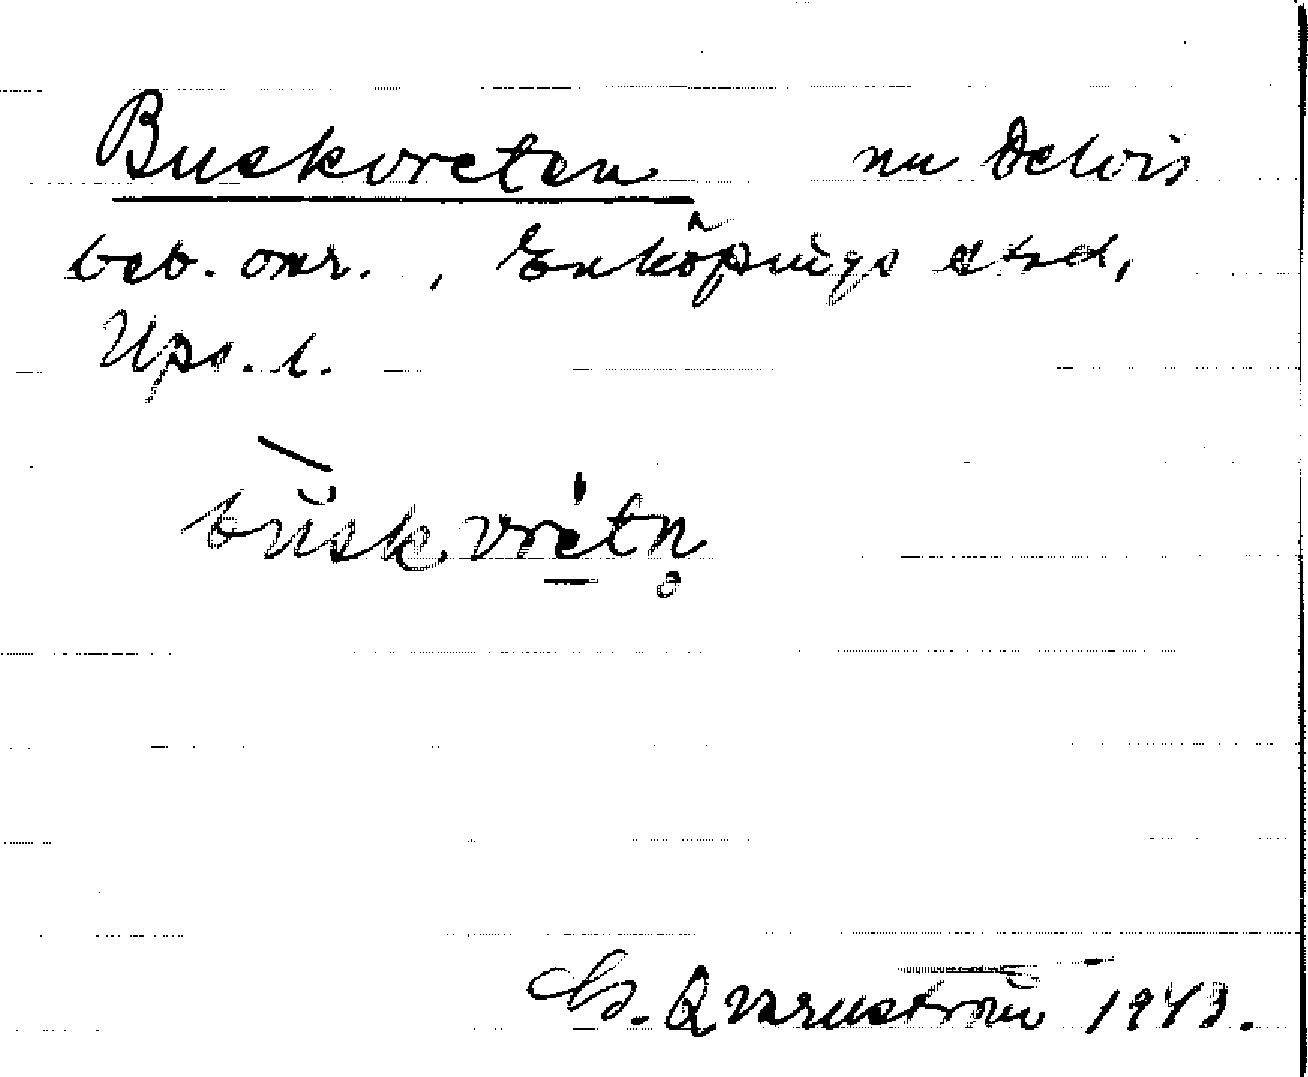 Buskvreten nu delvis
beb. omr., Enköpings stad,
Upps. l.
bŭskvrètn̥
G. Qvarnström 1943.